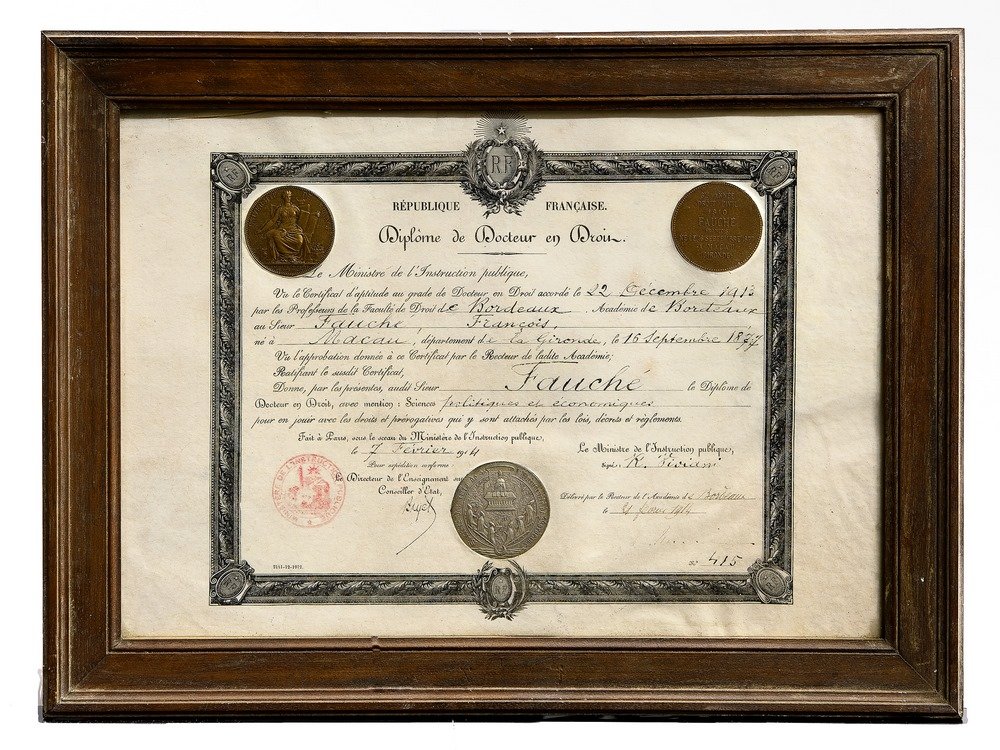 RF
RÉPUBLIQUE FRANÇAISE.
Diplôme de Docteur en Droit.
Le Ministre de l'Instruction publique,
Vu le Certificat d'aptitude au grade de Docteur en Droit accordé le 22 Décembre 1913
par les Professeurs de la Faculté de Droit de Bordeaux, Académie de Bordeaux
au Sieur Fauché, François,
né à Macau, département de la Gironde, le 16 Septembre 1877,
Vu l'approbation donnée à ce Certificat par le Recteur de ladite Académie;
Ratifiant le susdit Certificat,
Donne, par les présentes, audit Sieur Fauché le Diplôme de
Docteur en Droit, avec mention : Sciences politiques et économiques
pour en jouir avec les droits et prérogatives qui y sont attachés par les lois, décrets et règlements.
Fait à Paris, sous le sceau du Ministère de l'Instruction publique,
le 7 Février 1914
Pour expédition conforme :
Le Directeur de l'Enseignement
Conseiller d'Etat,
Le Ministre de l'Instruction publique,
Signé : R. Viviani
Délivré par le Recteur de l'Académie de Bordeaux
le 1914
N° 415
MINISTERE DE L'INSTRUCTION PUBLIQUE